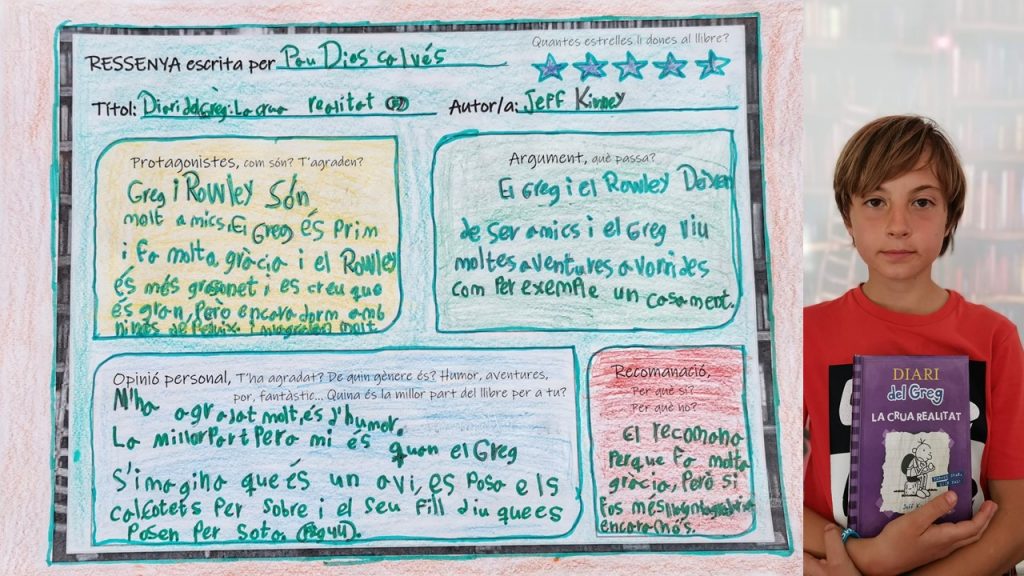 Quantes estrelles li dones al llibre?
RESSENYA escrita per Pau Dios calvés
Títol: Diari del Greg: La crua realitat
Autor/a: Jeff Kinney
Protagonistes, com són? T'agraden?
Greg i Rowley Són
molt amics, El Greg és Prim
i fa molta gràcia i el Rowley
és més grasonet i es creu que
és gran, Però encara dorm amb
ninots de Peluix i m'agraden molt
Argument, què passa?
El Greg i el Rowley Deixen
de Ser amics i el Greg viu
moltes aventures avorrides
com Per exemple un casament.
Opinió personal, T'ha agradat? De quin gènere és? Humor, aventures,
por, fantàstic... Quina és la millor part del llibre per a tu?
M'ha agradat molt, és d'humor.
La millor Part Pera mi és quan el Greg
S'imagina que és un avi, es Posa els
calçotets Per Sobre i el Seu Fill diu que es
Posen Per Sota.
Recomanació,
Per què sí?
Per què no?
El recomano
Perque fa molta
gràcia, Però si
fos més
encara més.
DIARI
del Greg
LA CRUA REALITAT